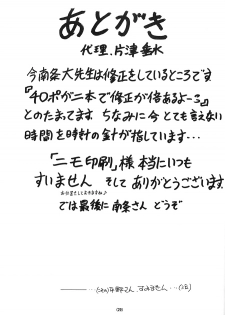 あとがき
代理.片津垂水
今南条大先生は修正をしているところです
『40ポが二本で修正が倍あるよーう』
とのたまってます ちなみに今とても言えない
時間を時計の針が指しています・・・
「ニモ印刷」様本当にいつも
すいません そして ありがとうございます
では最後に 南条さん どうぞ
すみません